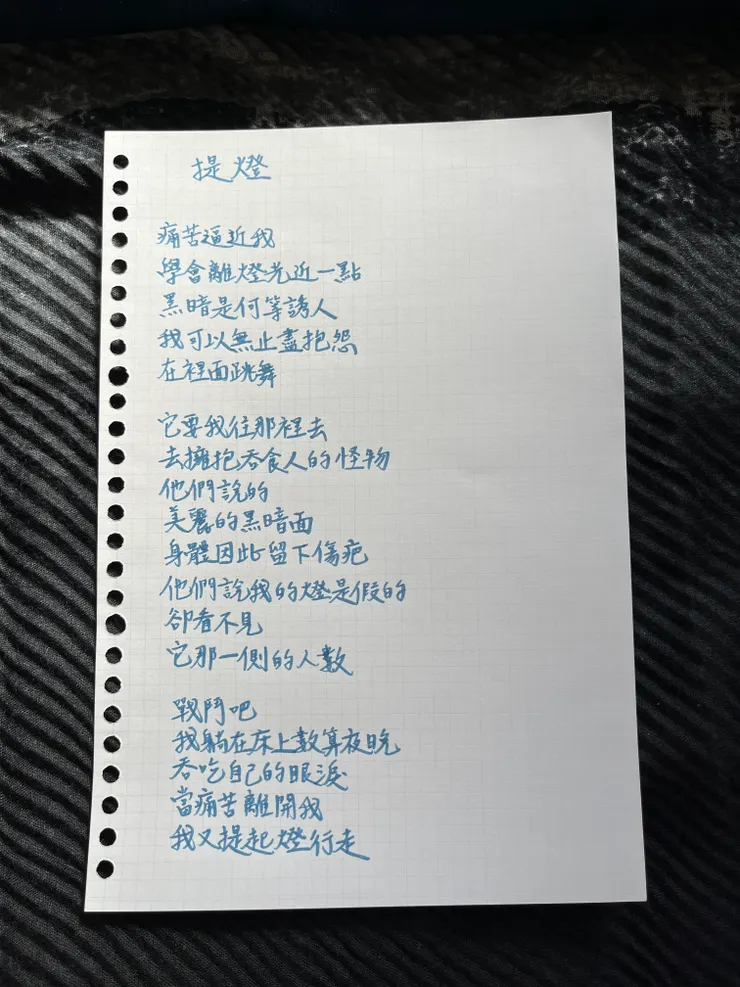 提燈
痛苦逼近我
學會離燈光近一點
黑暗是何等誘人
我可以無止盡抱怨
在裡面跳舞
它要我往那裡去
去擁抱吞食人的怪物
他們說的
美麗的黑暗面
身體因此留下傷疤
他們說我的燈是假的
卻看不見
它那一側的人數
戰鬥吧
我躺在床上數算夜晚
吞吃自己的眼淚
當痛苦離開我
我又提起燈行走